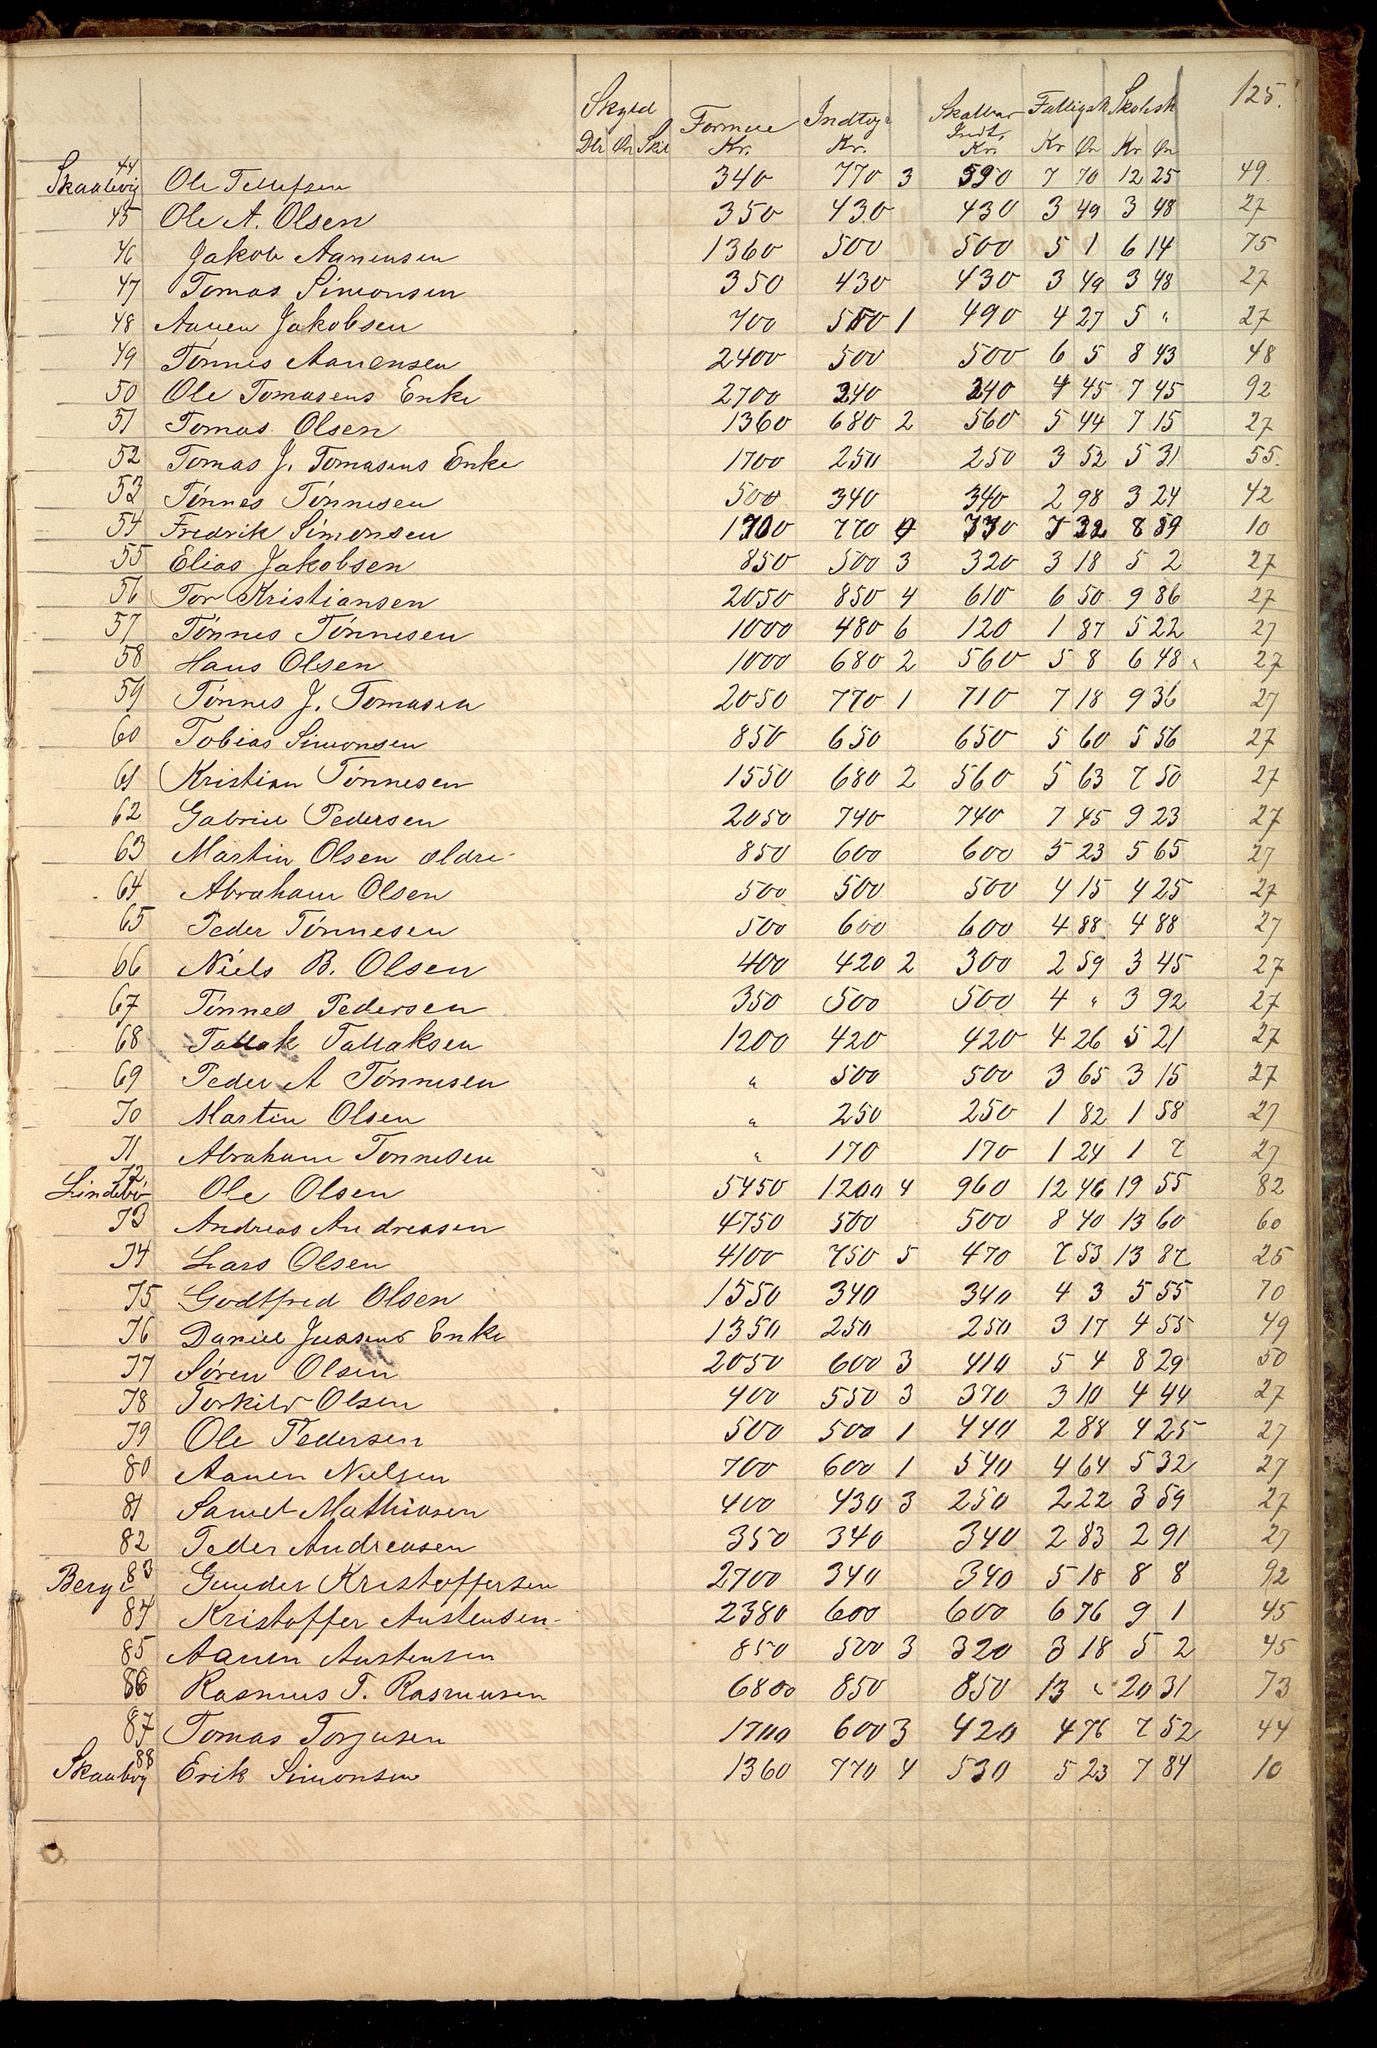 125.
Skyld Formue Indtægt Skatbar Indt. Fattigsk Skolesk
Dlr Ort Skil Kr. Kr. Kr. Kr Ør Kr Ør
Skaalevig 44 Ole Tellefsen 340 770 3 590 7 70 12 25 49
45 Ole A. Olsen 350 430 430 3 49 3 48 27
46 Jakob Aanensen 1360 500 500 5 1 6 14 75
47 Tomas Simonsen 350 430 430 3 49 3 48 27
48 Aanen Jakobsen 700 550 1 490 4 27 5 " 27
49 Tønnes Aanensen 2400 500 500 6 5 8 43 48
50 Ole Tomasens Enke 2700 240 240 4 45 7 45 92
51 Tomas Olsen 1360 680 2 560 5 44 7 15 27
52 Tomas J. Tomasens Enke 1700 250 250 3 52 5 31 55.
53 Tønnes Tønnesen 500 340 340 2 98 3 24 42
54 Fredrik Simonsen 1700 770 4 530 5 32 8 59 10
55 Elias Jakobsen 850 500 3 320 3 18 5 2 27
56 Tor Kristiansen 2050 850 4 610 6 50 9 86 27
57 Tønnes Tønnesen 1000 480 6 120 1 87 5 22 27
58 Hans Olsen 1000 680 2 560 5 8 6 48 27
59 Tønnes J. Tomasen 2050 770 1 710 7 18 9 36 27
60 Tobias Simonsen 850 650 650 5 60 5 56 27
61 Kristian Tønnesen 1550 680 2 560 5 63 7 50 27
62 Gabriel Pedersen 2050 740 740 7 45 9 23 27
63 Martin Olsen ældre 850 600 600 5 23 5 65 27
64 Abraham Olsen 500 500 500 4 15 4 25 27
65 Peder Tønnesen 500 600 600 4 88 4 88 27
66 Niels B. Olsen 400 420 2 300 2 59 3 45 27
67 Tønnes Pedersen 350 500 500 4 " 3 92 27
68 Tallak Tallaksen 1200 420 420 4 26 5 21 27
69 Peder A Tønnesen " 500 500 3 65 3 15 27
70 Martin Olsen " 250 250 1 82 1 58 27
71 Abraham Tønnesen " 170 170 1 24 1 7 27
Lindebø 72 Ole Olsen 5450 1200 4 960 12 46 19 55 82
73 Andreas Andreasen 4750 500 500 8 40 13 60 60
74 Lars Olsen 4100 750 5 470 7 53 13 87 25
75 Godtfred Olsen 1550 340 340 4 3 5 55 70
76 Daniel Jensens Enke 1350 250 250 3 17 4 55 49
77 Søren Olsen 2050 600 3 410 5 4 8 29 50
78 Torkild Olsen 400 550 3 370 3 10 4 44 27
79 Ole Pedersen 500 500 1 440 2 88 4 25 27
80 Aanen Nielsen 700 600 1 540 4 64 5 32 27
81 Samel Mathiasen 400 430 3 250 2 22 3 59 27
82 Peder Andreasen 350 340 340 2 83 2 91 27
Berge 83 Gunder Kristoffersen 2700 340 340 5 18 8 8 92
84 Kristoffer Austensen 2380 600 600 6 76 9 1 45
85 Aanen Austensen 850 500 3 320 3 18 5 2 45
86 Rasmus T. Rasmusen 6800 850 850 13 " 20 31 73
87 Tomas Torjusen 1700 600 3 420 4 76 7 52 44
Skaalevig 88 Erik Simonsen 1360 770 4 530 5 23 7 84 10